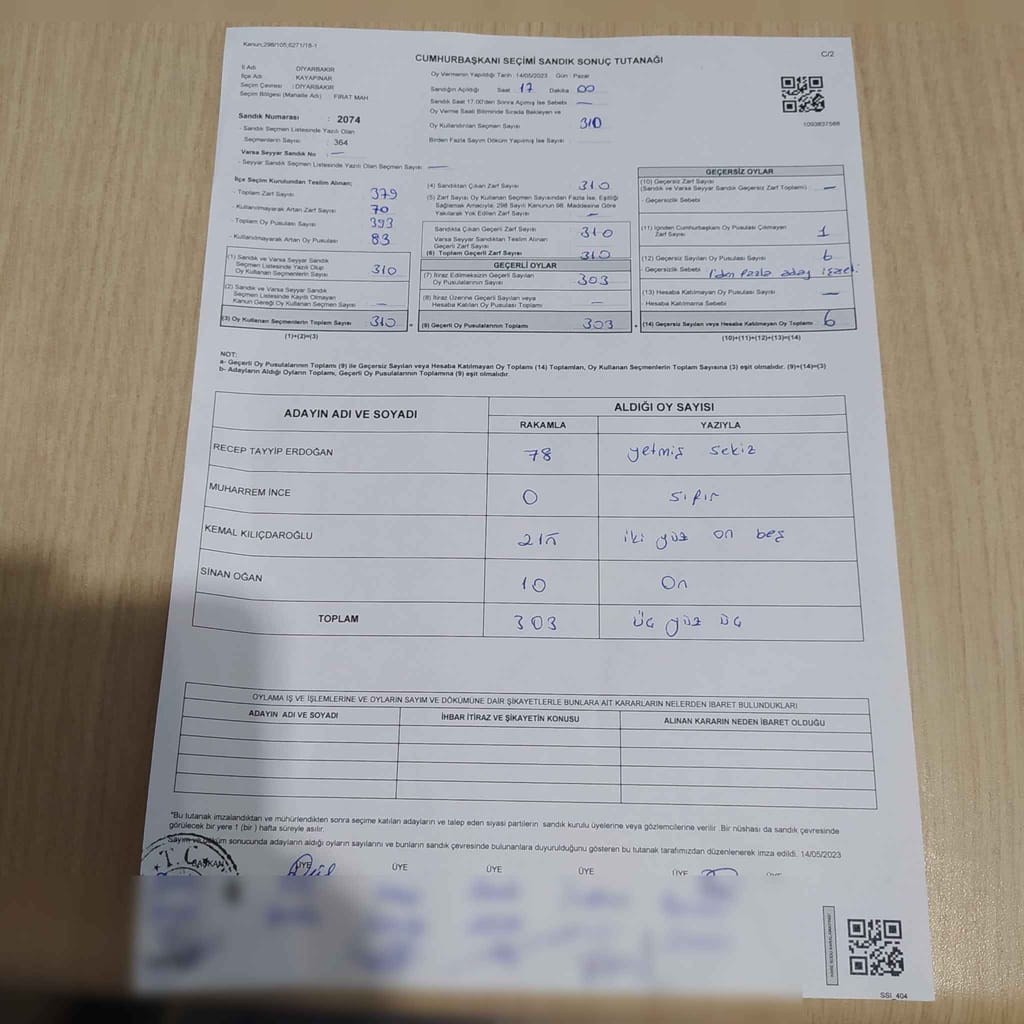 Kanun;298/105,6271/18-1
C/2
CUMHURBAŞKANI SEÇİMİ SANDIK SONUÇ TUTANAĞI
İl Adı : DİYARBAKIR
İlçe Adı : KAYAPINAR
Seçim Çevresi : DİYARBAKIR
Seçim Bölgesi (Mahalle Adı) : FIRAT MAH
Sandık Numarası : 2074
- Sandık Seçmen Listesinde Yazılı Olan
Seçmenlerin Sayısı : 364
Varsa Seyyar Sandık No : —
- Seyyar Sandık Seçmen Listesinde Yazılı Olan Seçmen Sayısı : —
Oy Vermenin Yapıldığı Tarih : 14/05/2023 Gün : Pazar
Sandığın Açıldığı Saat : 17 Dakika : 00
Sandık Saat 17:00'den Sonra Açılmış İse Sebebi : —
Oy Verme Saati Bitiminde Sırada Bekleyen ve
Oy Kullandırılan Seçmen Sayısı : 310
Birden Fazla Sayım Döküm Yapılmış İse Sayısı :
1093837568
İlçe Seçim Kurulundan Teslim Alınan;
- Toplam Zarf Sayısı : 379
- Kullanılmayarak Artan Zarf Sayısı : 70
- Toplam Oy Pusulası Sayısı : 393
- Kullanılmayarak Artan Oy Pusulası : 83
(1) Sandık ve Varsa Seyyar Sandık
Seçmen Listesinde Yazılı Olup
Oy Kullanan Seçmenlerin Sayısı : 310
(2) Sandık ve Varsa Seyyar Sandık
Seçmen Listesinde Kayıtlı Olmayan
Kanun Gereği Oy Kullanan Seçmen Sayısı : —
(3) Oy Kullanan Seçmenlerin Toplam Sayısı : 310
(1)+(2)=(3)
(4) Sandıktan Çıkan Zarf Sayısı : 310
(5) Zarf Sayısı Oy Kullanan Seçmen Sayısından Fazla İse, Eşitliği
Sağlamak Amacıyla; 298 Sayılı Kanunun 98. Maddesine Göre
Yakılarak Yok Edilen Zarf Sayısı : —
Sandıkta Çıkan Geçerli Zarf Sayısı : 310
Varsa Seyyar Sandıktan Teslim Alınan
Geçerli Zarf Sayısı
(6) Toplam Geçerli Zarf Sayısı : 310
GEÇERLİ OYLAR
(7) İtiraz Edilmeksizin Geçerli Sayılan
Oy Pusulasının Sayısı : 303
(8) İtiraz Üzerine Geçerli Sayılan veya
Hesaba Katılan Oy Pusulası Toplamı : —
(9) Geçerli Oy Pusulalarının Toplamı : 303
GEÇERSİZ OYLAR
(10) Geçersiz Zarf Sayısı
(Sandık ve Varsa Seyyar Sandık Geçersiz Zarf Toplamı) : —
- Geçersizlik Sebebi :
(11) İçinden Cumhurbaşkanı Oy Pusulası Çıkmayan
Zarf Sayısı : 1
(12) Geçersiz Sayılan Oy Pusulası Sayısı : 6
- Geçersizlik Sebebi : 1'den fazla aday
(13) Hesaba Katılmayan Oy Pusulası Sayısı : —
- Hesaba Katılmama Sebebi :
(14) Geçersiz Sayılan veya Hesaba Katılmayan Oy Toplamı : 6
(10)+(11)+(12)+(13)=(14)
NOT:
a- Geçerli Oy Pusulalarının Toplamı (9) ile Geçersiz Sayılan veya Hesaba Katılmayan Oy Toplamı (14) Toplamları, Oy Kullanan Seçmenlerin Toplam Sayısına (3) eşit olmalıdır. (9)+(14)=(3)
b- Adayların Aldığı Oyların Toplamı, Geçerli Oy Pusulalarının Toplamına (9) eşit olmalıdır.
ADAYIN ADI VE SOYADI ALDIĞI OY SAYISI
RAKAMLA YAZIYLA
RECEP TAYYİP ERDOĞAN 78 yetmiş sekiz
MUHARREM İNCE 0 sıfır
KEMAL KILIÇDAROĞLU 215 iki yüz on beş
SİNAN OĞAN 10 On
TOPLAM 303 üç yüz üç
OYLAMA İŞ VE İŞLEMLERİNE VE OYLARIN SAYIM VE DÖKÜMÜNE DAİR ŞİKAYETLERLE BUNLARA AİT KARARLARIN NELERDEN İBARET BULUNDUKLARI
ADAYIN ADI VE SOYADI İHBAR İTİRAZ VE ŞİKAYETİN KONUSU ALINAN KARARIN NEDEN İBARET OLDUĞU
"Bu tutanak imzalandıktan ve mühürlendikten sonra seçime katılan adayların ve talep eden siyasi partilerin sandık kurulu üyelerine veya gözlemcilerine verilir. Bir nüshası da sandık çevresinde
görülecek bir yere 1 (bir ) hafta süreyle asılır.
Sayım ve döküm sonucunda adayların aldığı oyların sayılarını ve bunların sandık çevresinde bulunanlara duyurulduğunu gösteren bu tutanak tarafımızdan düzenlenerek imza edildi. 14/05/2023
T.C.
BAŞKAN ÜYE ÜYE ÜYE ÜYE ÜYE
SSI_404